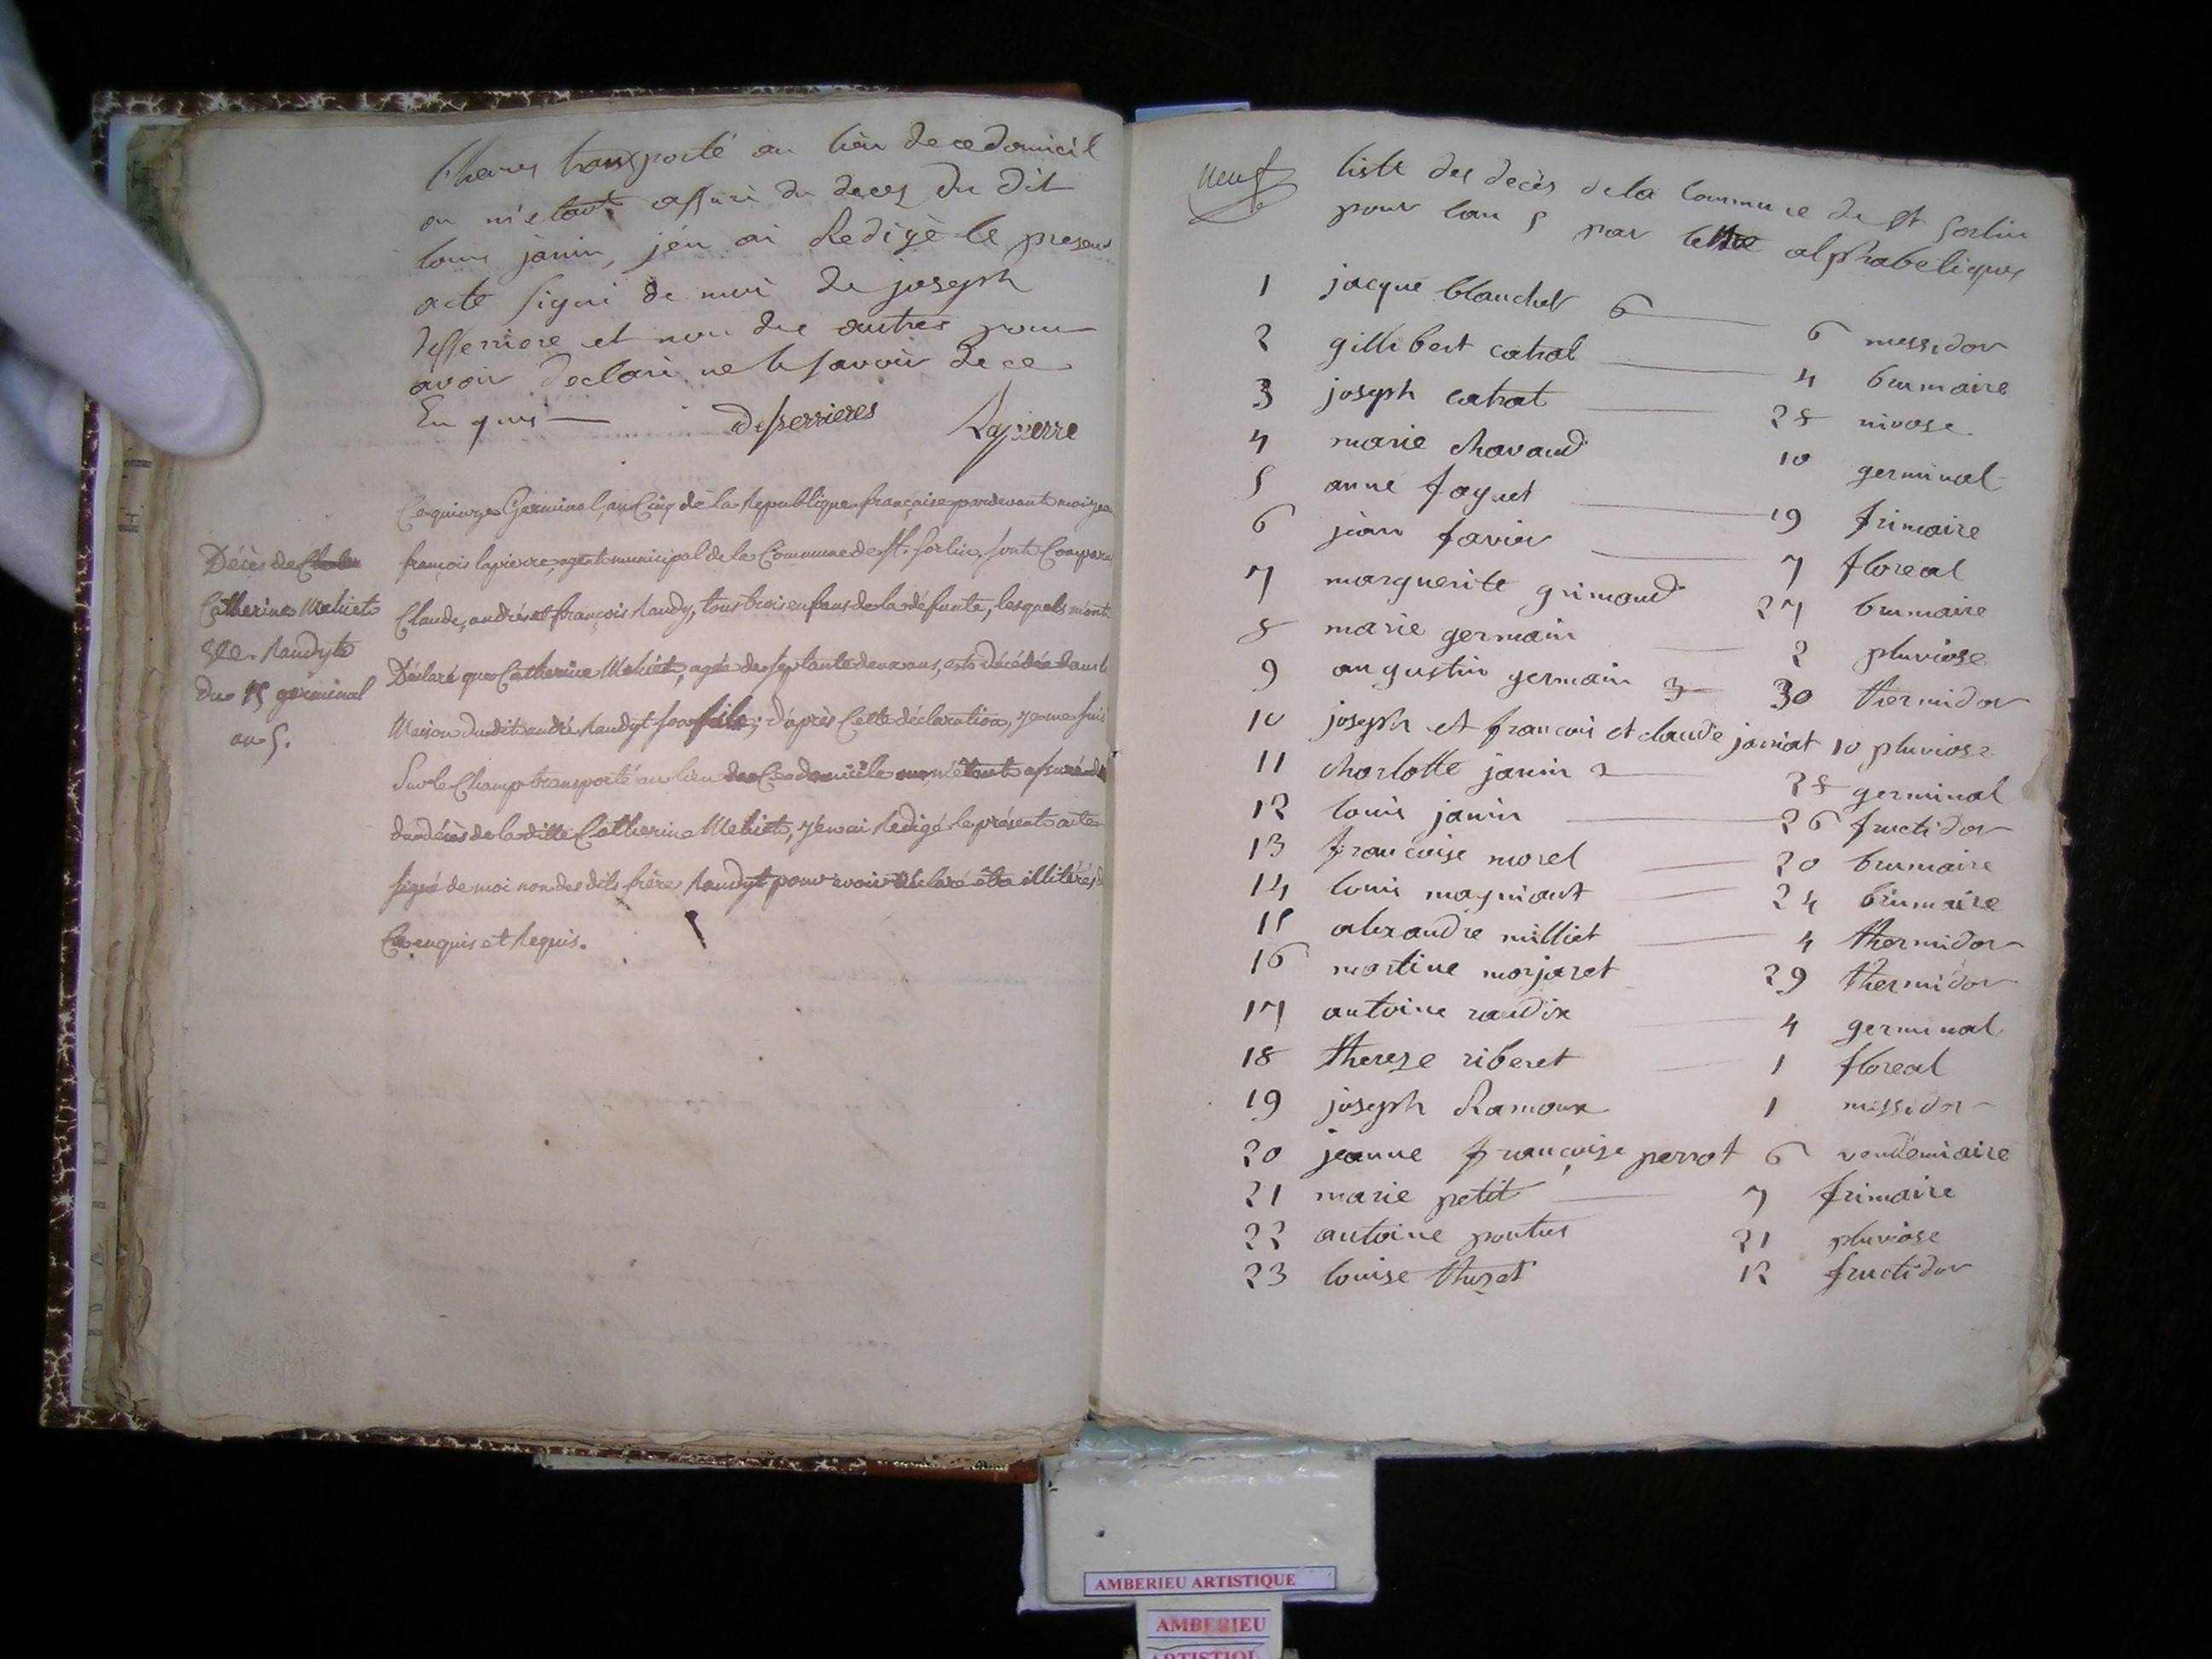 transporté au lieu de ce domicil
ou m'etant assuré du deces du dit
louis janin, j'en ai Redigé le present
acte signé de moi de joseph
desserriere et non des autres pour
avoir declaré ne le savoir de ce
Enquis
desserrieres Lapierre
Ce quinze Germinal, an Cinq de la Republique française pardevant moi jean
françois lapierre, agent municipal de la Commune de St. Sorlin, sont Comparus
Claude, andré et françois Raudy, tous trois enfans de la défunte, lesquels m'ont
Déclaré que Catherine Mehiet, agée de septante deux ans, est décédée dans la
Maison du dit andré Raudyt son fils; d'après Cette déclaration, je me suis
Sur le Champ transporté au lieu de Ce domicile ou m'étant assuré du
du décès de la ditte Catherine Mehiet, j'en ai Redigé le présent acte
signé de moi non des dits frère Raudyt pour avoir déclaré être illitérés de
Ce enquis et Requis.
Décès de
Catherine Mehiet
Raudyt
Du 15 germinal
an 5.
neuf
liste des decès de la commune de St Sorlin
pour lan 5 par lettre alphabetiques
1 jacque blanchet 6 6 messidor
2 gillibert catral 4 brumaire
3 joseph catrat 28 nivose
4 marie chavand 10 germinal
5 anne faguet 19 frimaire
6 jean favier 7 floreal
7 marguerite grimand 27 brumaire
8 marie germain 2 pluviose
9 augustin germain 3 30 thermidor
10 joseph et francois et claude janiat 10 pluviose
11 charlotte janin 2 28 germinal
12 louis janin 26 fructidor
13 francoise morel 20 brumaire
14 louis magniant 24 brumaire
15 alexandre milliet 4 thermidor
16 martine morjaret 29 thermidor
17 antoine raudix 4 germinal
18 therese riberet 1 floreal
19 joseph Ramoux 1 messidor
20 jeanne françoise perrot 6 vendemiaire
21 marie petit 7 frimaire
22 antoine pontus 21 pluviose
23 louise thuret 12 fructidor
AMBERIEU ARTISTIQUE
AMBERIEU